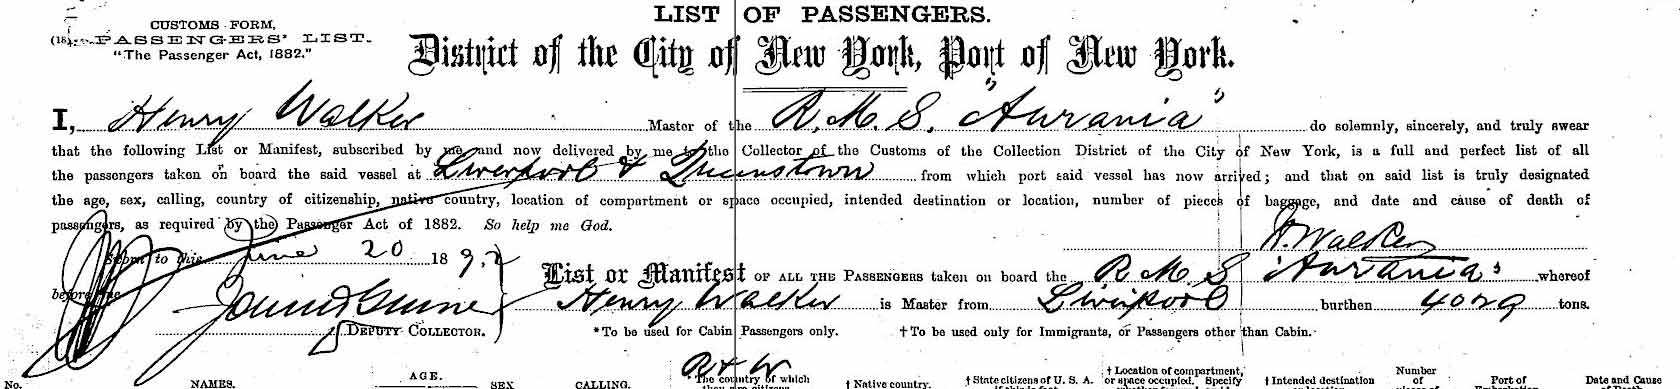 LIST OF PASSENGERS.
CUSTOMS FORM,
PASSENGERS' LIST.
"The Passenger Act, 1882."
District of the City of New York, Port of New York.
I, Henry Walker Master of the R. M. S. "Aurania" do solemnly, sincerely, and truly swear
that the following List or Manifest, subscribed by me, and now delivered by me to the Collector of the Customs of the Collection District of the City of New York, is a full and perfect list of all
the passengers taken on board the said vessel at Liverpool & Queenstown from which port said vessel has now arrived; and that on said list is truly designated
the age, sex, calling, country of citizenship, native country, location of compartment or space occupied, intended destination or location, number of pieces of baggage, and date and cause of death of
passengers, as required by the Passenger Act of 1882. So help me God.
H. Walker
Sworn to this June 20 1892
before me
DEPUTY COLLECTOR.
List or Manifest OF ALL THE PASSENGERS taken on board the R M S "Aurania" whereof
Henry Walker is Master from Liverpool burthen 4029 tons.
*To be used for Cabin Passengers only. †To be used only for Immigrants, or Passengers other than Cabin.
No. NAMES. AGE. SEX CALLING. *The country of which †Native country. †State citizens of U. S. A. †Location of compartment, or space occupied. Specify †Intended destination Number of Port of Date and Cause of